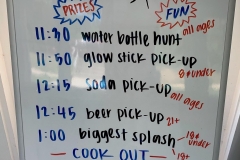 PRIZES FUN
11:30 water bottle hunt all ages
11:50 glow stick pick-up 8+under
12:15 soda pick-up all ages
12:45 beer pick-up 21+
1:00 biggest splash 18+ under
18+
COOK OUT